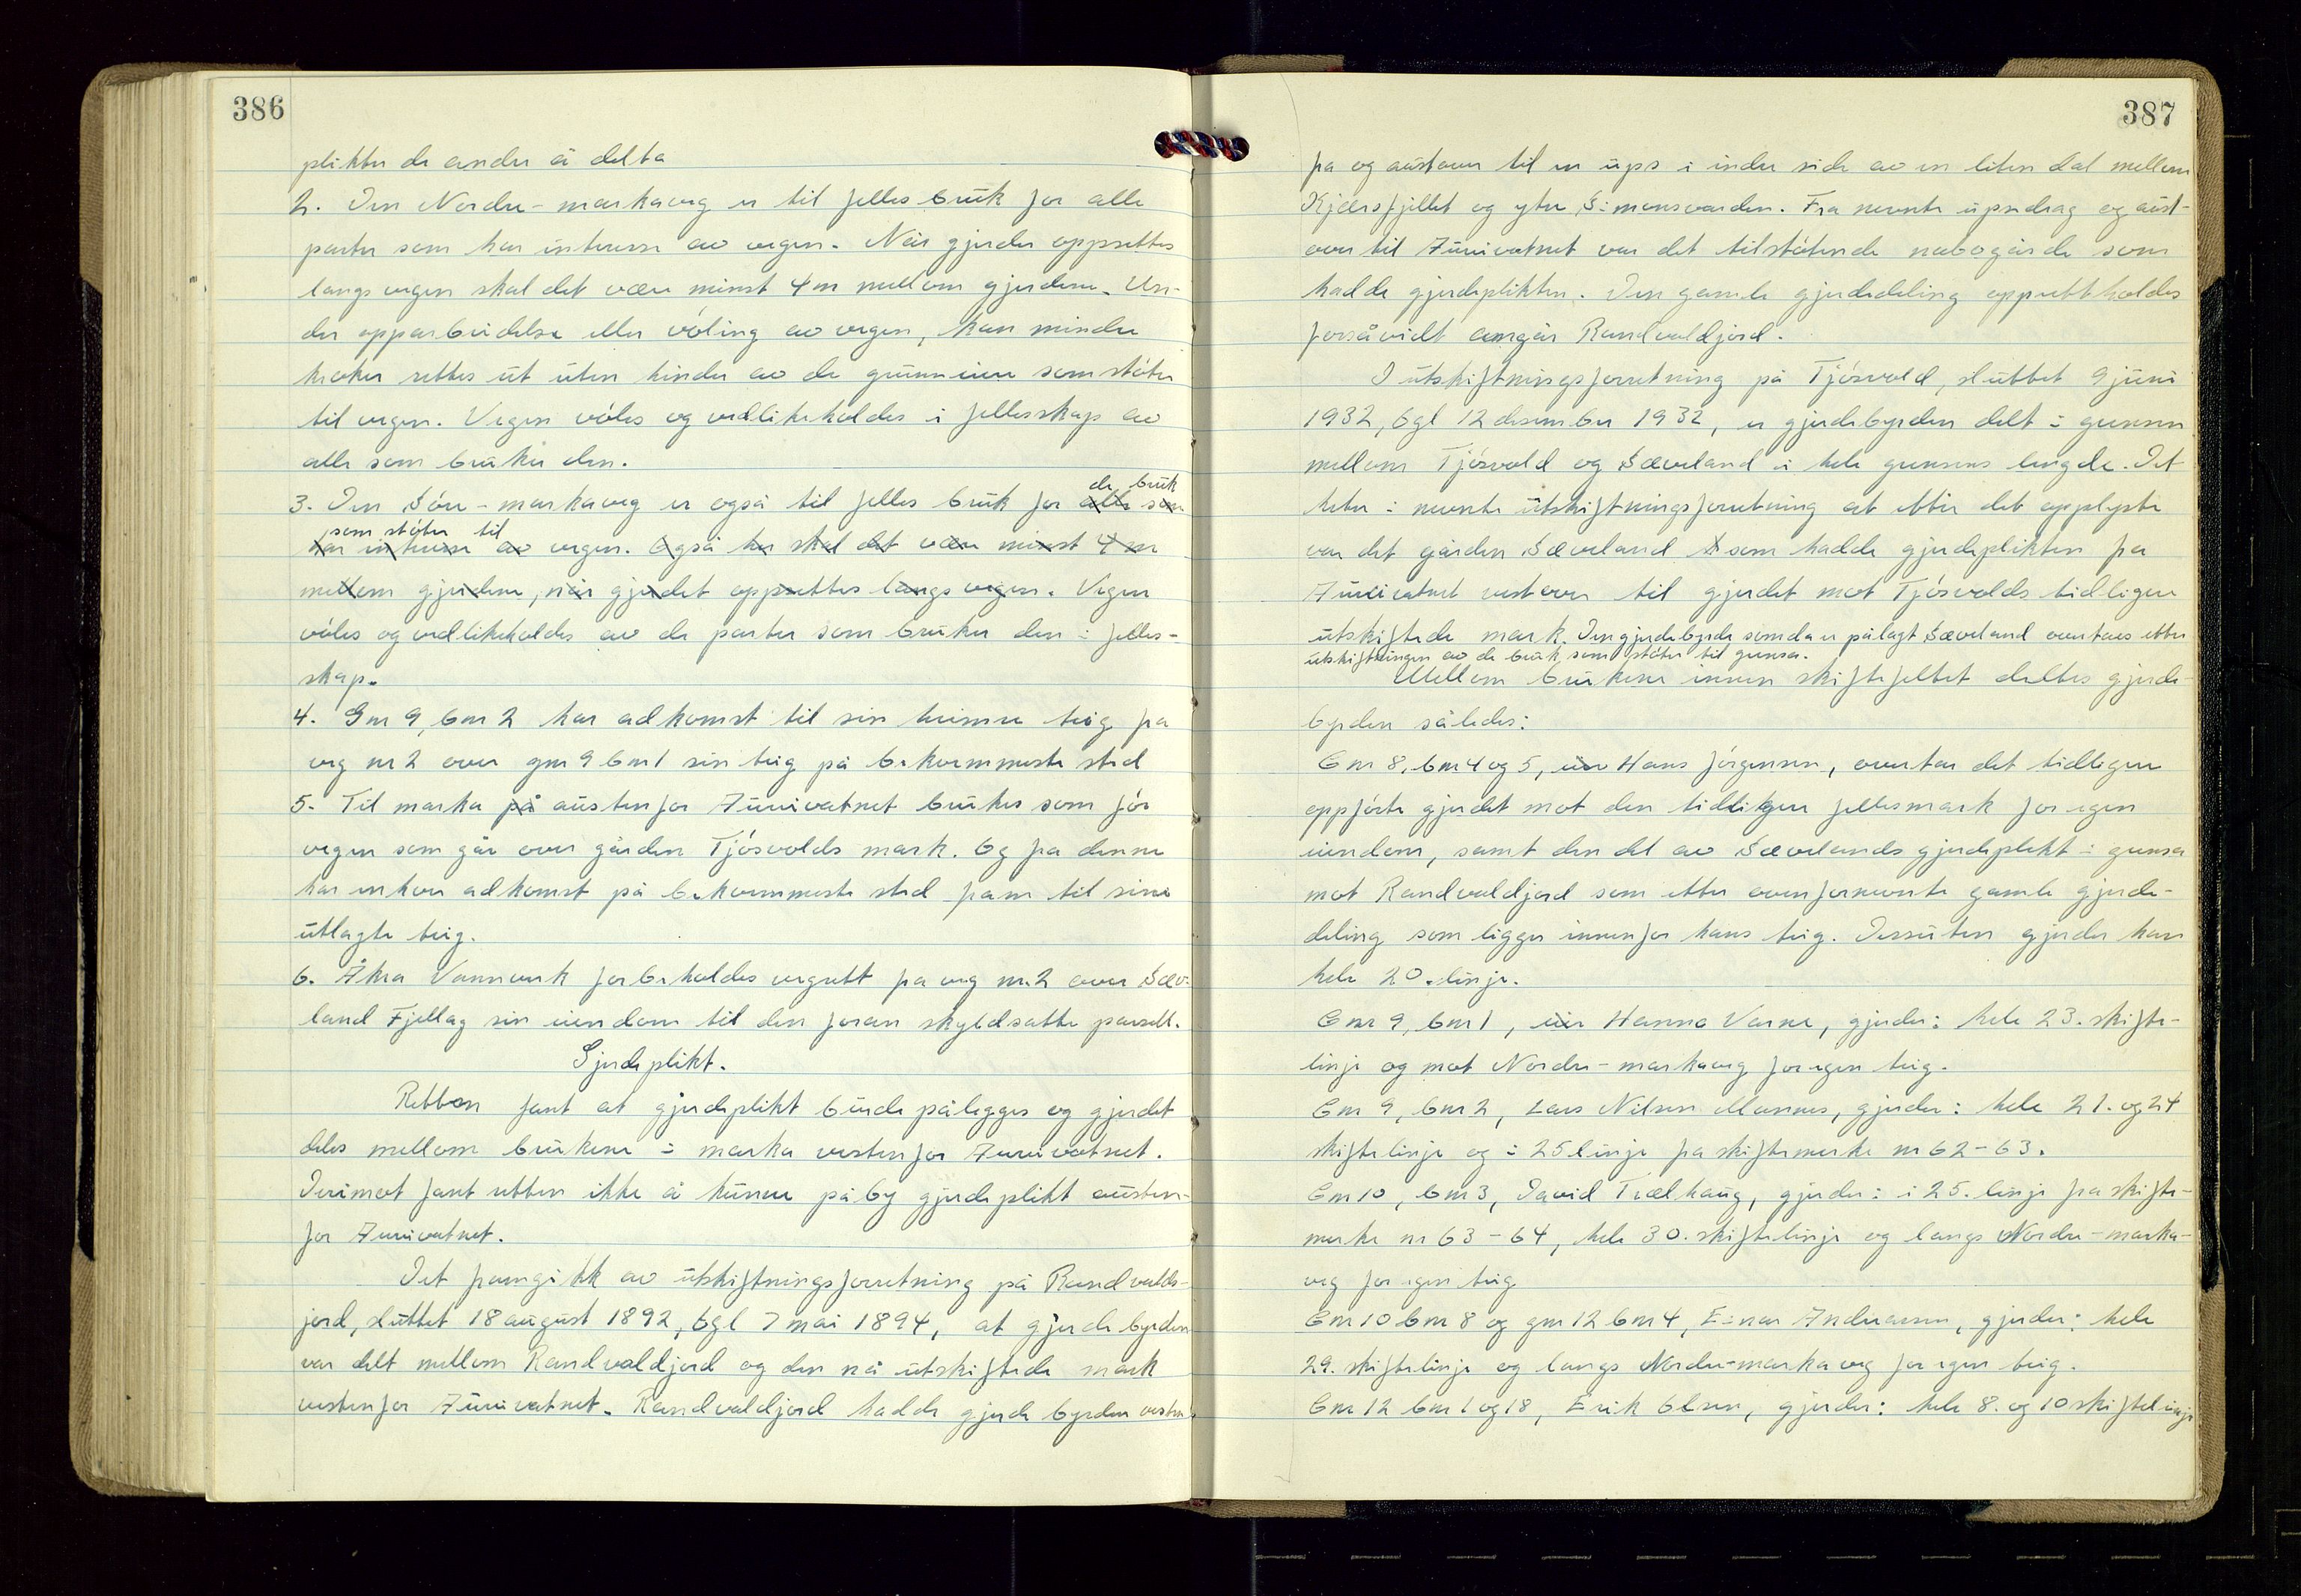 386
plikter de andre å delta
2. Den Nordre-markaveg er til felles bruk for alle
parter som har interesse av vegen. Når gjerder oppsettes
langs vegen skal det være minst 4 m mellom gjerdene. Un-
der opparbeidelse eller vøling av vegen, kan mindre
kroker rettes ut uten hinder av de grunneiere som støter
til vegen. Vegen vøles og vedlikeholdes i fellesskap av
alle som bruker den.
de bruk
3. Den Søre-markaveg er også til felles bruk for alle som
som støter til
har interesse av vegen. Også her skal det være minst 4 m
mellom gjerdene, når gjerdet oppsettes langs vegen. Vegen
vøles og vedlikeholdes av de parter som bruker den i felles-
skap.
4. Gnr 9, bnr 2 har adkomst til sin heimre teig fra
veg nr 2 over gnr 9 bnr 1 sin teig på bekvemmeste sted
5. Til marka på austenfor Furevatnet brukes som før
vegen som går over gården Tjøsvolds mark. Og fra denne
har enhver adkomst på bekvemmeste sted fram til sine
utlagte teig.
6. Åkra Vannverk forbeholdes vegrett fra veg nr. 2 over Sæve-
land Fjellag sin eiendom til den foran skyldsatte parsell.
Gjerdeplikt.
Retten fant at gjerdeplikt burde pålegges og gjerdet
deles mellom brukene i marka vestenfor Furevatnet.
Derimot fant retten ikke å kunne påby gjerdeplikt austen-
for Furevatnet.
Det framgikk av utskiftningsforretning på Randvalds-
jord, sluttet 18 august 1892, tgl 7 mai 1894, at gjerdebyrden
var delt mellom Randvaldjord og den nå utskiftede mark
vestenfor Furevatnet. Randvaldjord hadde gjerdebyrden vesten-
387
fra og austover til en ups i indre side av en liten dal mellem
Kjærsfjellet og ytre Simonsvarden. Fra nevnte upsedrag og aust-
over til Furevatnet var det tilstøtende nabogårde som
hadde gjerdeplikten. Den gamle gjerdedeling opprettholdes
forsåvidt angår Randvaldjord.
I utskiftningsforretning på Tjøsvold, sluttet 9 juni
1932, tgl 12 desember 1932, er gjerdebyrden delt i grensen
mellem Tjøsvold og Sæveland i hele grensens lengde. Det
heter i nevnte utskiftningsforretning at etter det opplyste
var det gården Sæveland som hadde gjerdeplikten fra
Furevatnet vestover til gjerdet mot Tjøsvolds tidligere
utskiftede mark. Den gjerdebyrde som da er pålagt Sæveland overtaes etter
utskiftningen av de bruk som støter til grensa.
Mellom brukene innen skiftefeltet deltes gjerde-
byrden således:
Gnr 8, bnr 4 og 5, eier Hans Jørgensen, overtar det tidligere
oppførte gjerdet mot den tidligere fellesmark for egen
eiendom, samt den del av Sævelands gjerdeplikt i grensa
mot Randvaldjord som etter ovenfornevnte gamle gjerde-
deling som ligger innenfor hans teig. Dessuten gjerder han
hele 20. linje.
Gnr 9, bnr 1, eier Hanna Varne, gjerder: hele 23. skifte-
linje og mot Nordre-markaveg for egen teig.
Gnr 9, bnr 2, Lars Nilsen Mannes, gjerder: hele 21. og 24
skiftelinje og i 25 linje fra skiftemerke nr 62-63.
Gnr 10, bnr 3, David Trælhaug, gjerder: i 25. linje fra skifte-
merke nr 63-64, hele 30. skiftelinje og langs Nordre-marka-
veg for egen teig
Gnr 10 bnr 8 og gnr 12 bnr 4, Einar Andreassen, gjerder: hele
29. skiftelinje og langs Nordre-markaveg for egen teig.
Gnr 12 bnr 1 og 18, Erik Olsen, gjerder: hele 8. og 10 skiftelinje